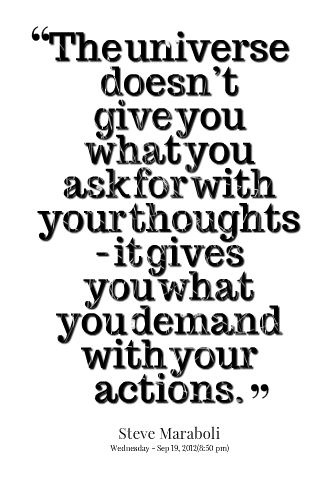 “The universe
doesn’t
give you
what you
ask for with
your thoughts
- it gives
you what
you demand
with your
actions.”
Steve Maraboli
Wednesday - Sep 19, 2012(8:50 pm)